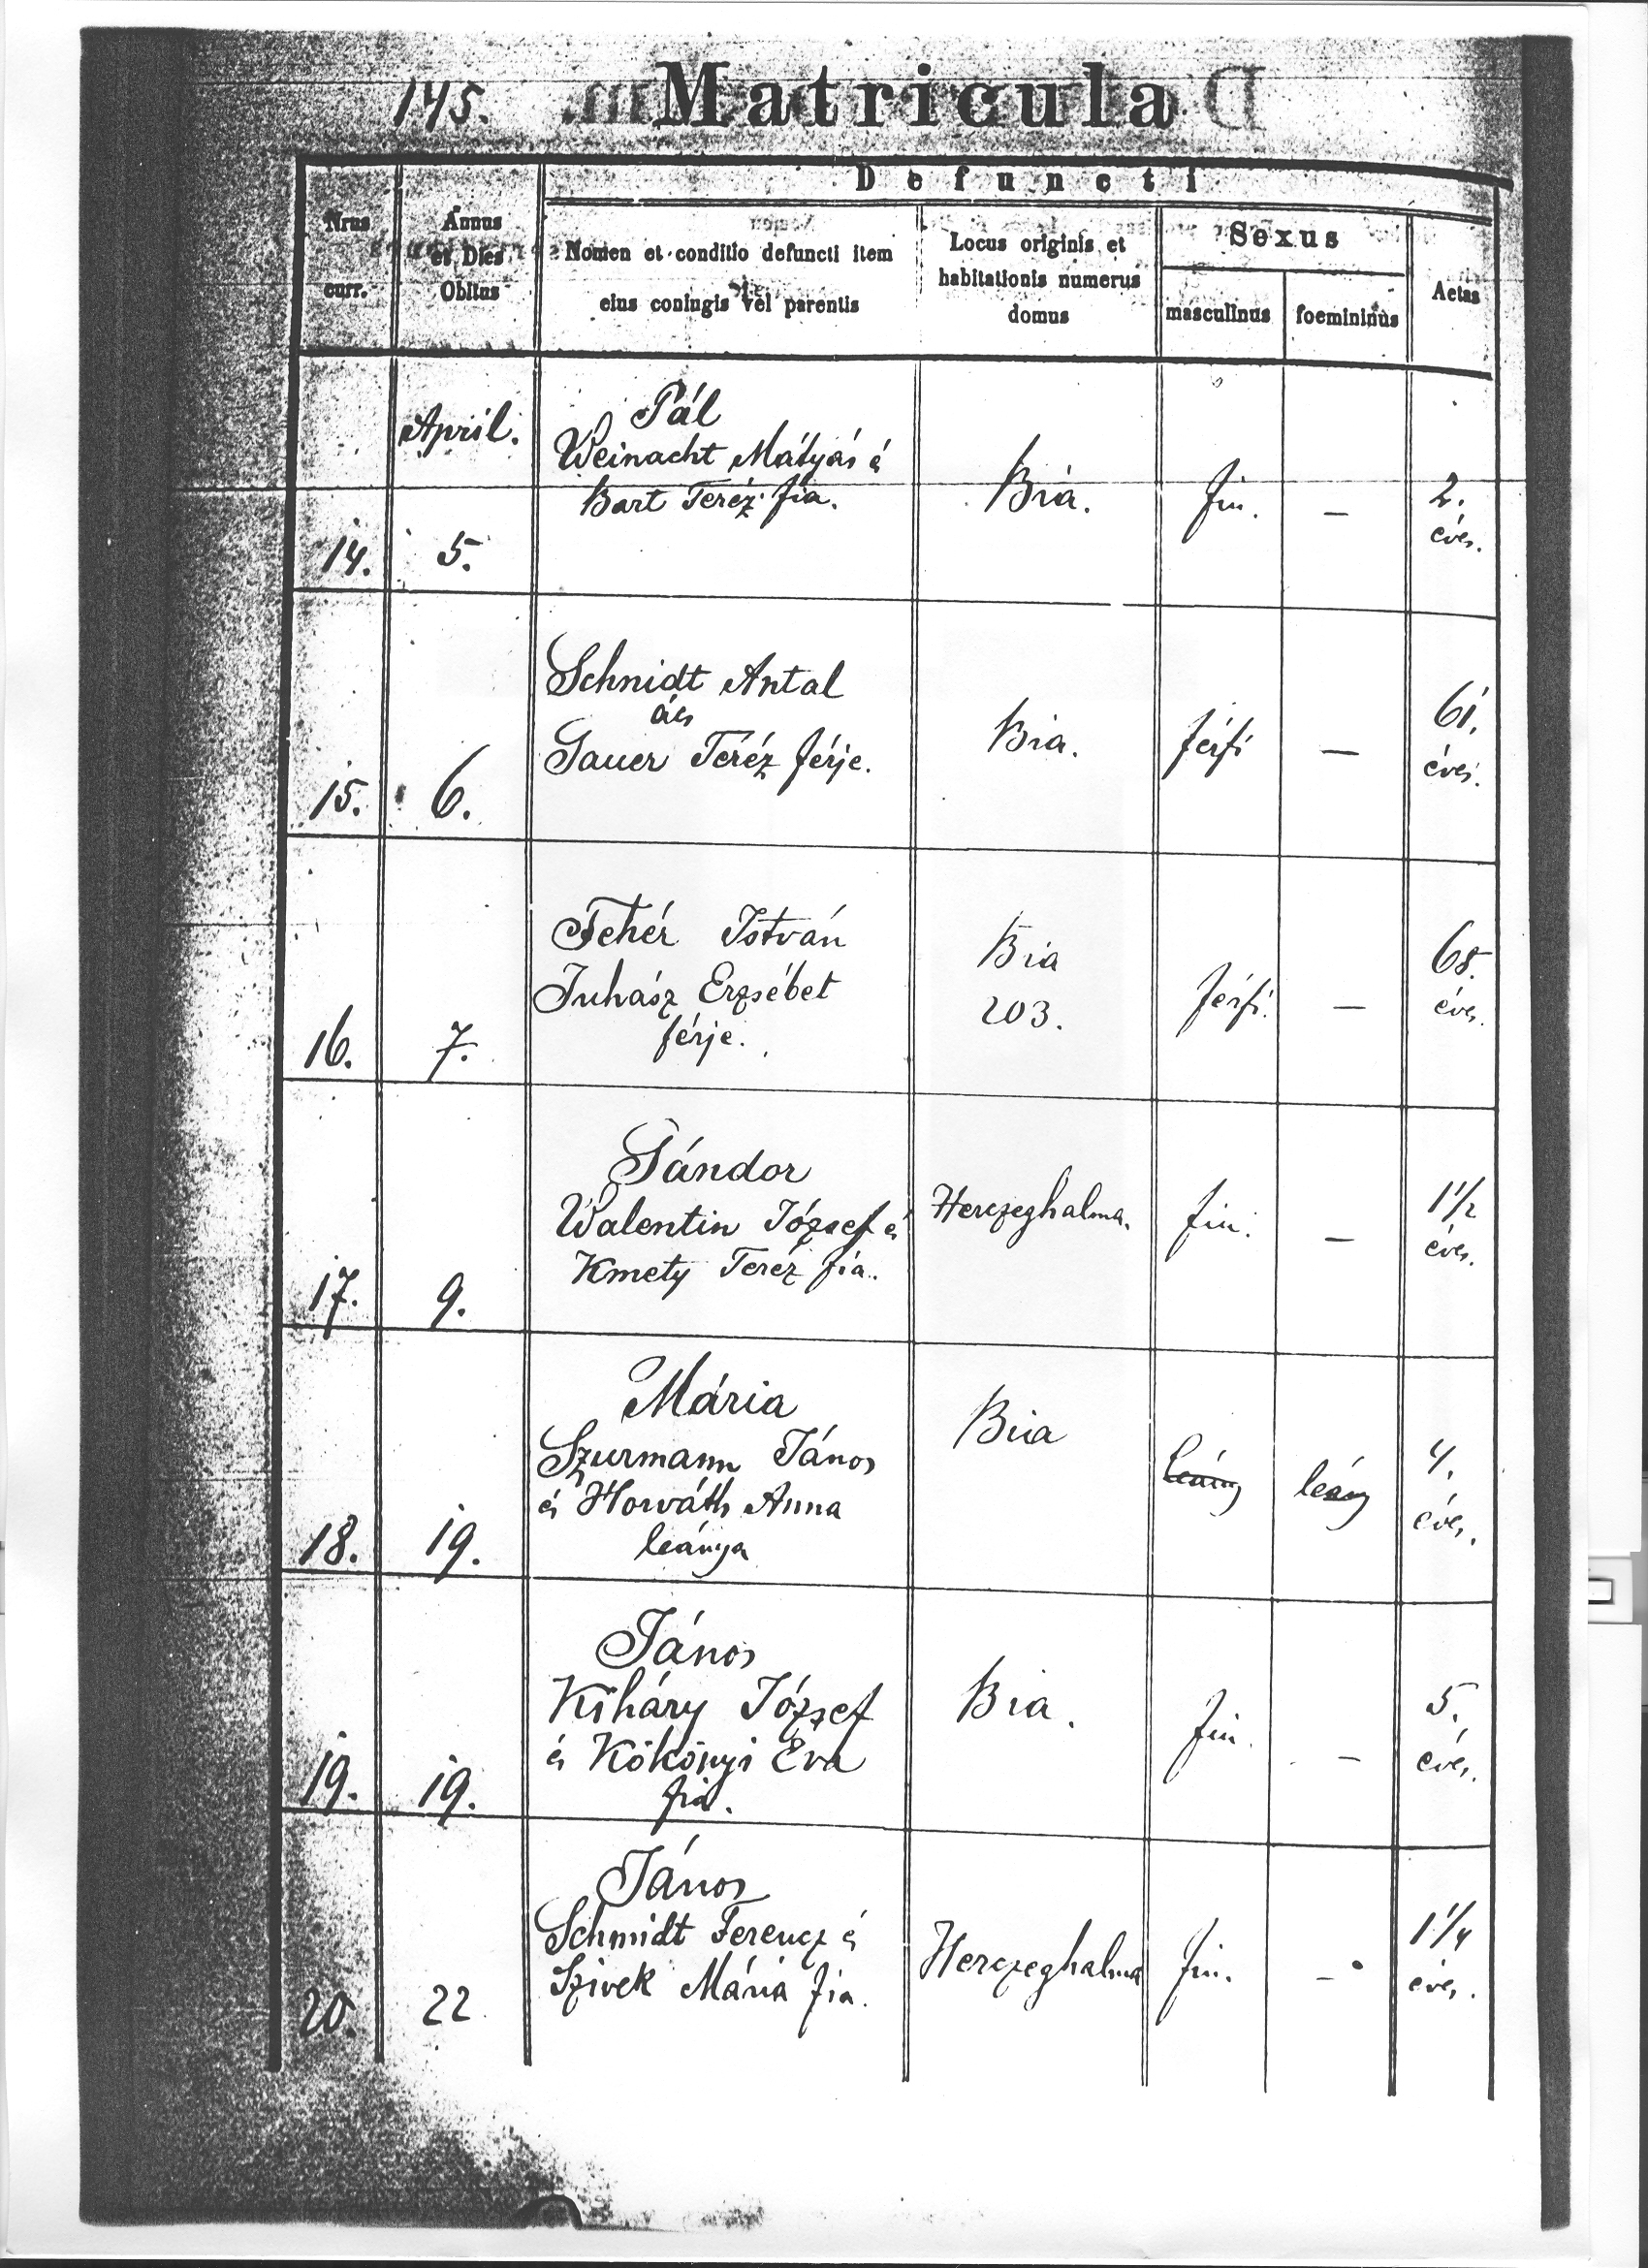 145.
Matricula
Defuncti
Nrus
curr.
Annus
et Dies
Obitus
Nomen et conditio defuncti item
eius coniugis vel parentis
Locus originis et
habitationis numerus
domus
Sexus
masculinus
foemininus
Aetas
April.
14.
5.
Pál
Weinacht Mátyás é
Bart Teréz fia.
Bia.
fiu.
—
2.
éves.
15.
6.
Schnidt Antal
ács
Sauer Teréz férje.
Bia.
férfi
—
61.
éves.
16.
7.
Fehér István
Juhász Erzsébet
férje.
Bia
203.
férfi.
—
68.
éves.
17.
9.
Sándor
Walentin József é
Kmety Teréz fia.
Herczeghalma.
fiu.
—
1 1/2
éves.
18.
19.
Mária
Szurmann János
és Horváth Anna
leánya
Bia
leány
leány
4.
éves.
19.
19.
János
József
és Kökönyi Éva
fia.
Bia.
fiu.
—
5.
éves.
20.
22
János
Schmidt Ferencz é
Szivek Mária fia.
Herczeghalma
fiu.
—
1 1/4
éves.